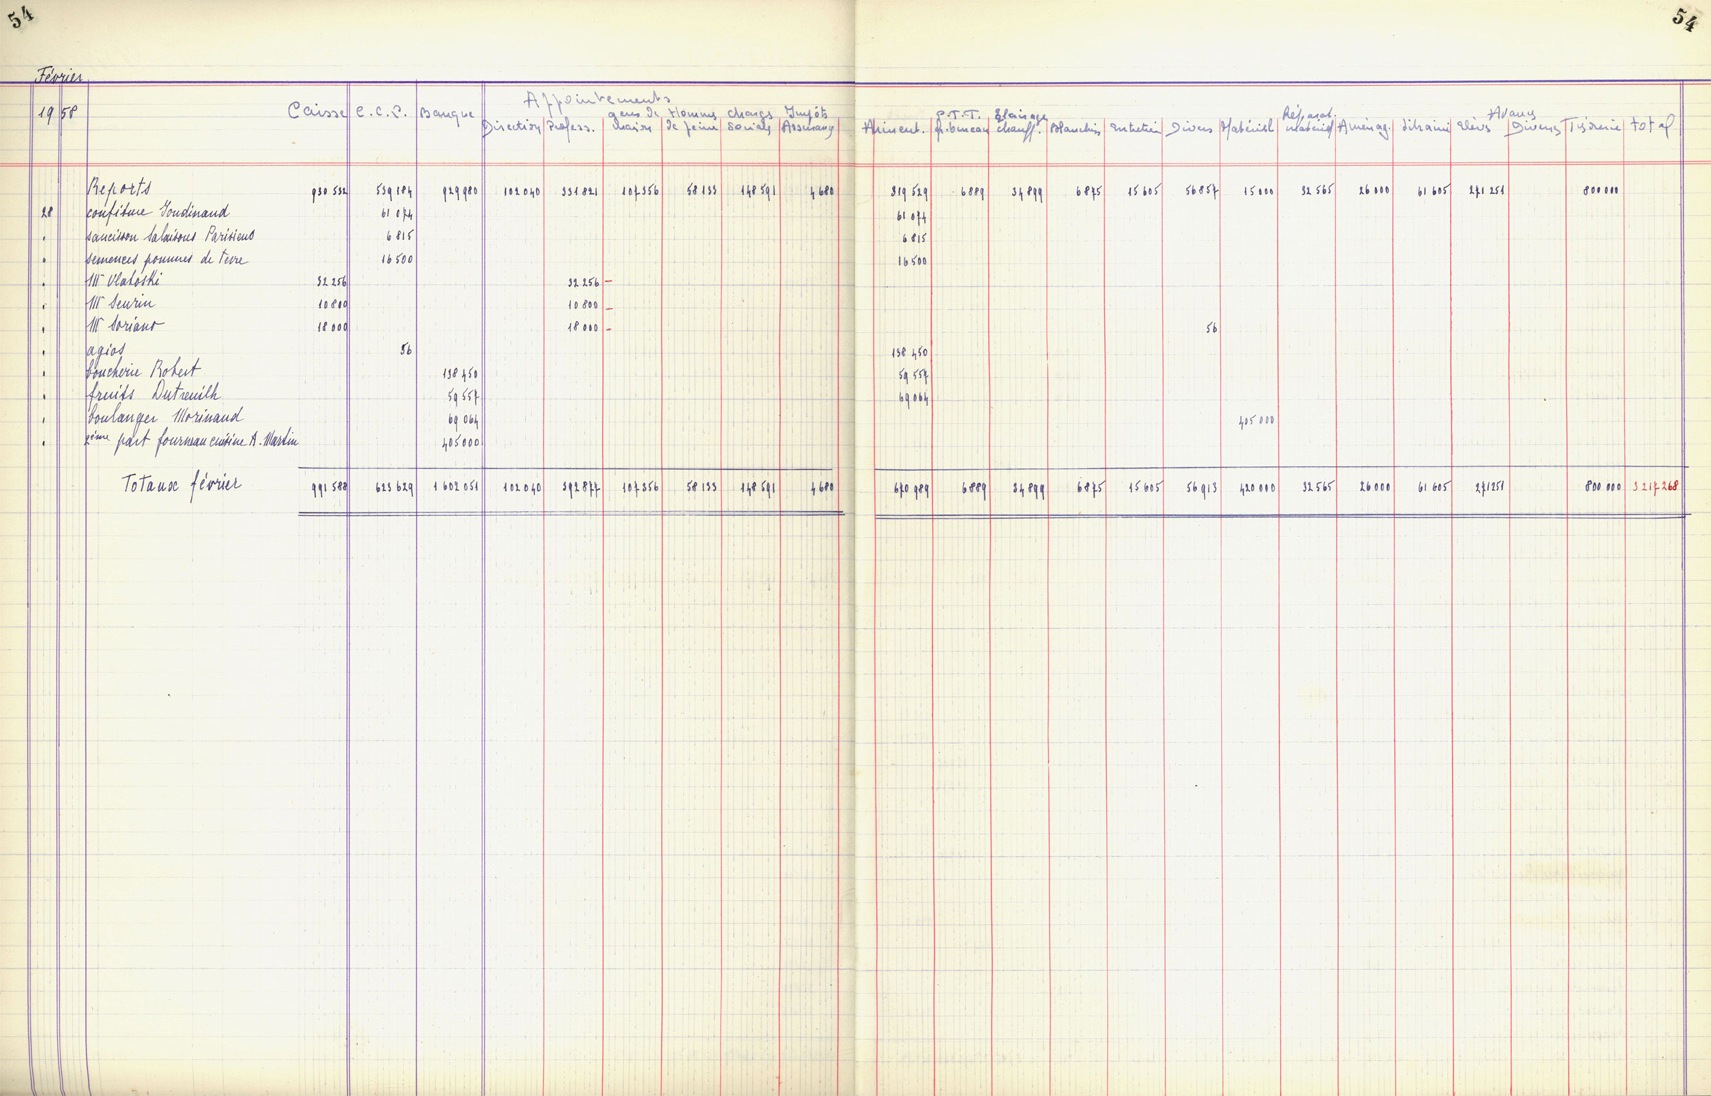 54
54
Février
1958
Appointements
Caisse C.C.P. Banque Direction Profess. gens de maison Hommes de peine charges sociales Impôts Assurances
Aliment. P.T.T. fr. bureau Eclairage chauff. Blanchis. Entretien Divers Matériel Réparat. matériel Aménag. Librairie Avances Elèves Divers Trésorerie total
Reports 930 532 539 184 929 980 102 040 331 821 107 356 58 133 148 591 4 680 319 529 6 889 34 899 6 875 15 605 56 857 15 000 32 565 26 000 61 605 271 251 800 000
28 confiture Goudinaud 61 074 61 074
" saucisson Salaisons Parisiens 6 815 6 815
" semences pommes de terre 16 500 16 500
" Mr Vlatoski 32 256 32 256 –
" Mr Seurin 10 800 10 800 –
" Mr Soriano 18 000 18 000 – 56
" agios 56 138 450
" boucherie Robert 138 450 59 557
" fruits Dutreuilh 59 557 69 064
" boulanger Morinaud 69 064 405 000
" 2ème part fourneau cuisine A. Martin 405 000
Totaux février 991 588 623 629 1 602 051 102 040 392 877 107 356 58 133 148 591 4 680 670 989 6 889 34 899 6 875 15 605 56 913 420 000 32 565 26 000 61 605 271 251 800 000 3 217 268